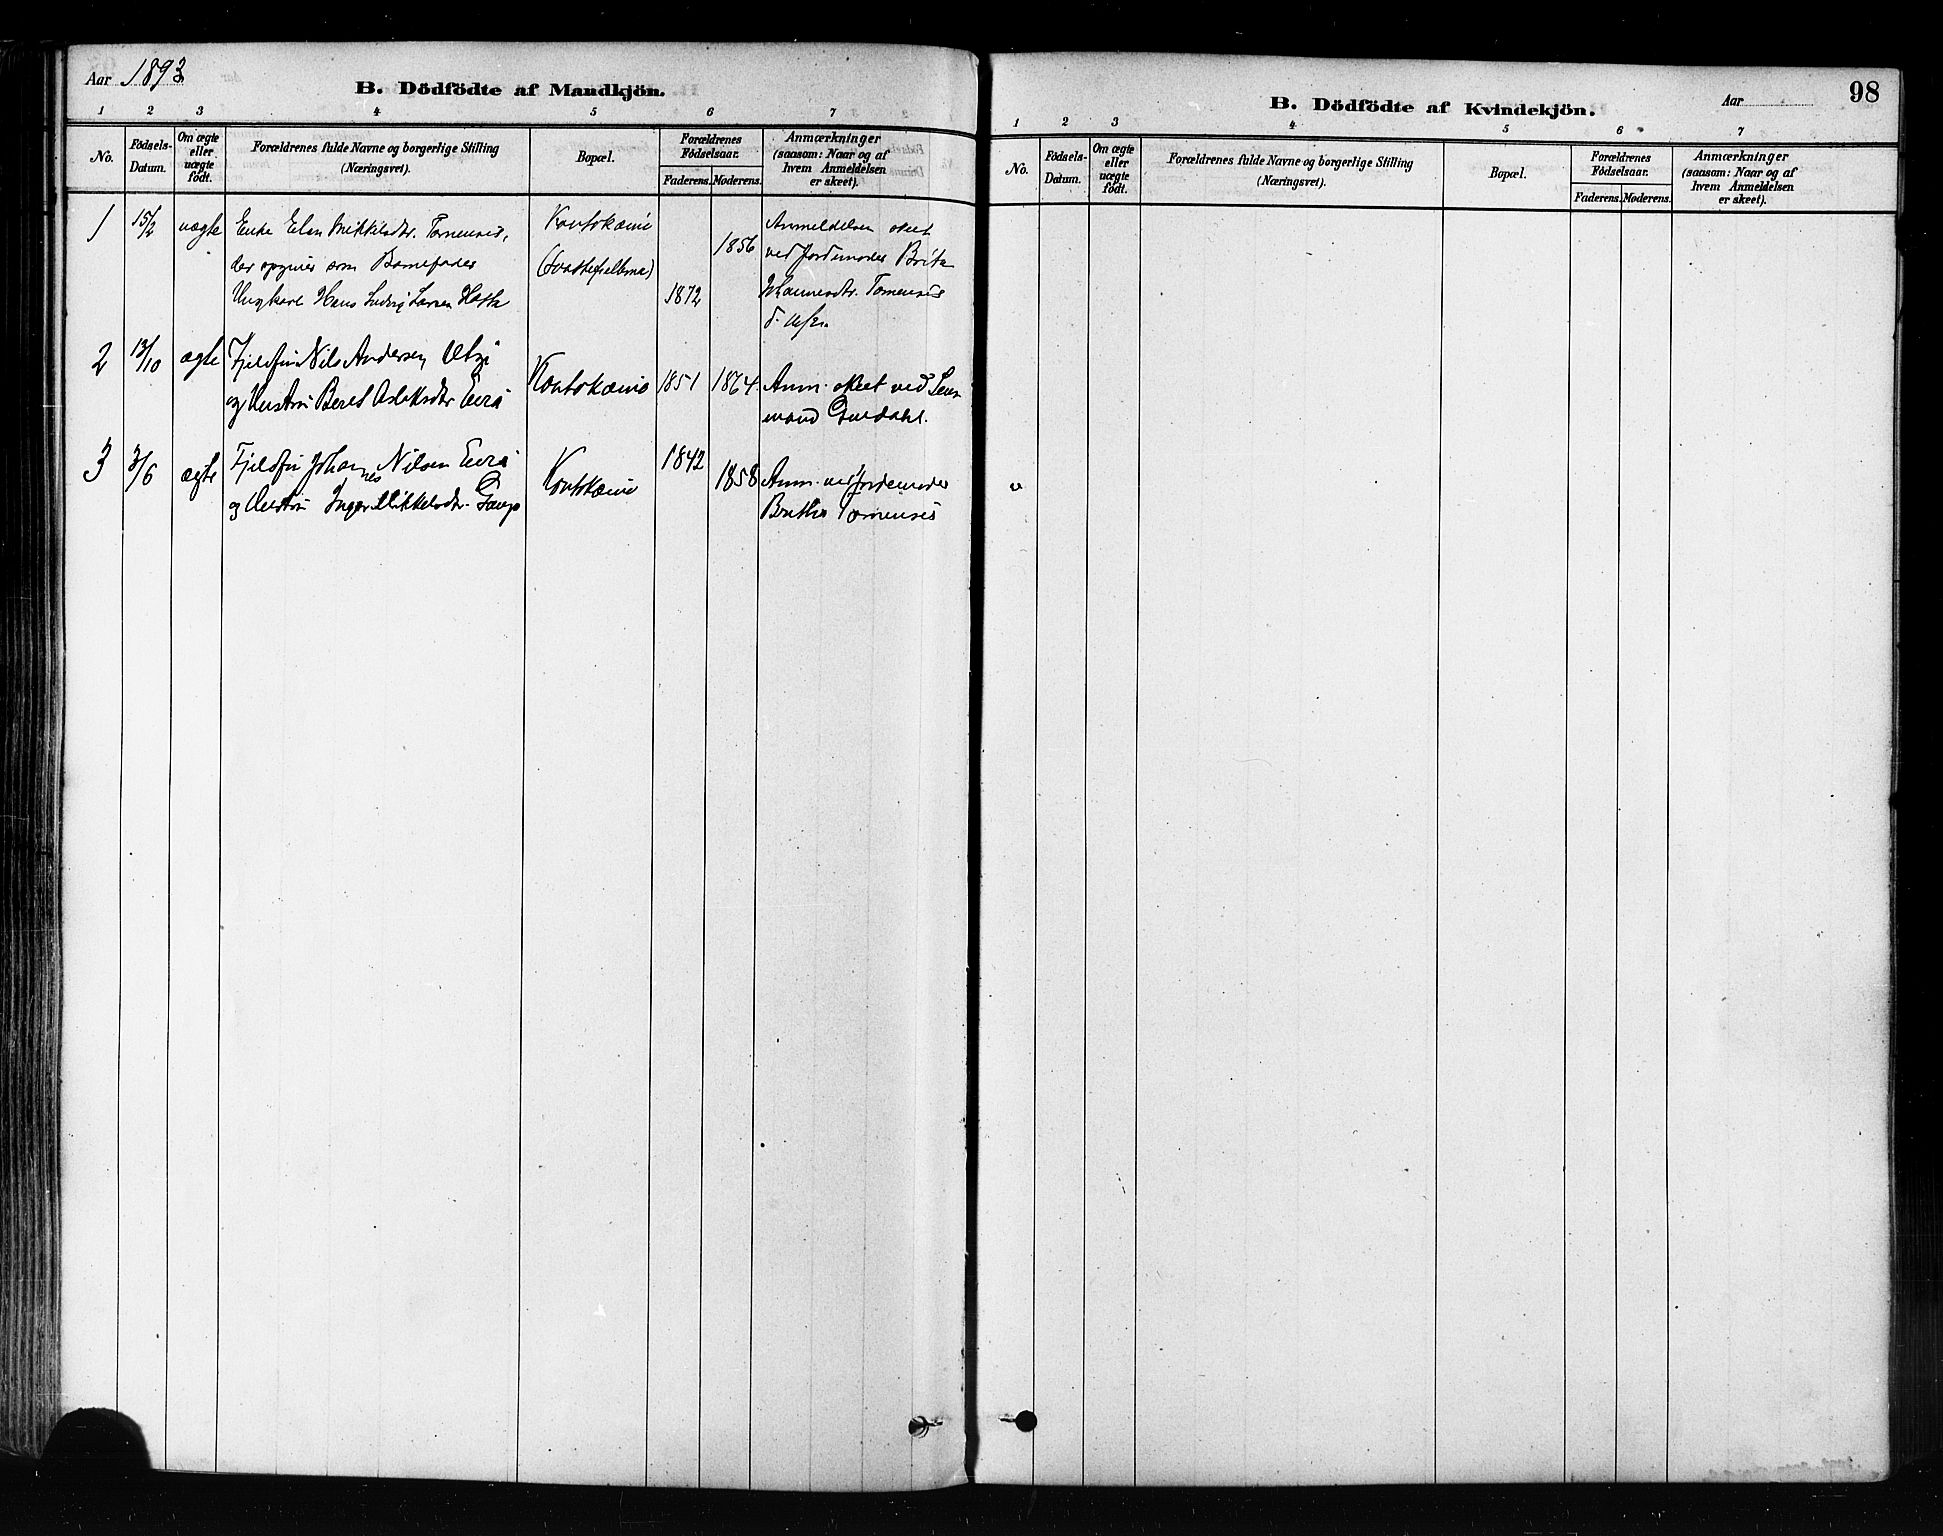 Aar 1893
B. Dödfödte af Mandkjön.
1 2 3 4 5 6 7
No.
Födsels-Datum.
Om ægte eller uægte födt.
Forældrenes fulde Navne og borgerlige Stilling (Næringsvei).
Bopæl.
Forældrenes Födselsaar.
Faderens. Moderens.
Anmærkninger (saasom: Naar og af hvem Anmeldelsen er skeet).
1 15/2 uægte
Enke Elen Mikkelsdtr. Tornensis,
der opgives som Barnefader
Ungkarl Hans Ludvig Larsen Hætta
Koutokæino
1872
1856
Anmeldelsen skeet
ved Jordemoder Brita
Johannesdtr. Tornensis
2 13/10 ægte
Fjeldfin Nils Andersen Utzi
og Hustru Beret Aslaksdtr Eira
Koutokæino
1851 1864
Anm. skeet ved Lens
mand Gundahl.
3 3/6 ægte
Fjeldfin Johannes Nilsen Eira
og Hustru Inger Mikkelsdtr. Gaup
Koutokæino
1842
1858
Anm. ved Jordemoder
Britha Tornensis
98
B. Dödfödte af Kvindekjön.
Aar
1 2 3 4 5 6 7
No.
Födsels-Datum.
Om ægte eller uægte födt.
Forældrenes fulde Navne og borgerlige Stilling (Næringsvei).
Bopæl.
Forældrenes Födselsaar.
Faderens. Moderens.
Anmærkninger (saasom: Naar og af hvem Anmeldelsen er skeet).